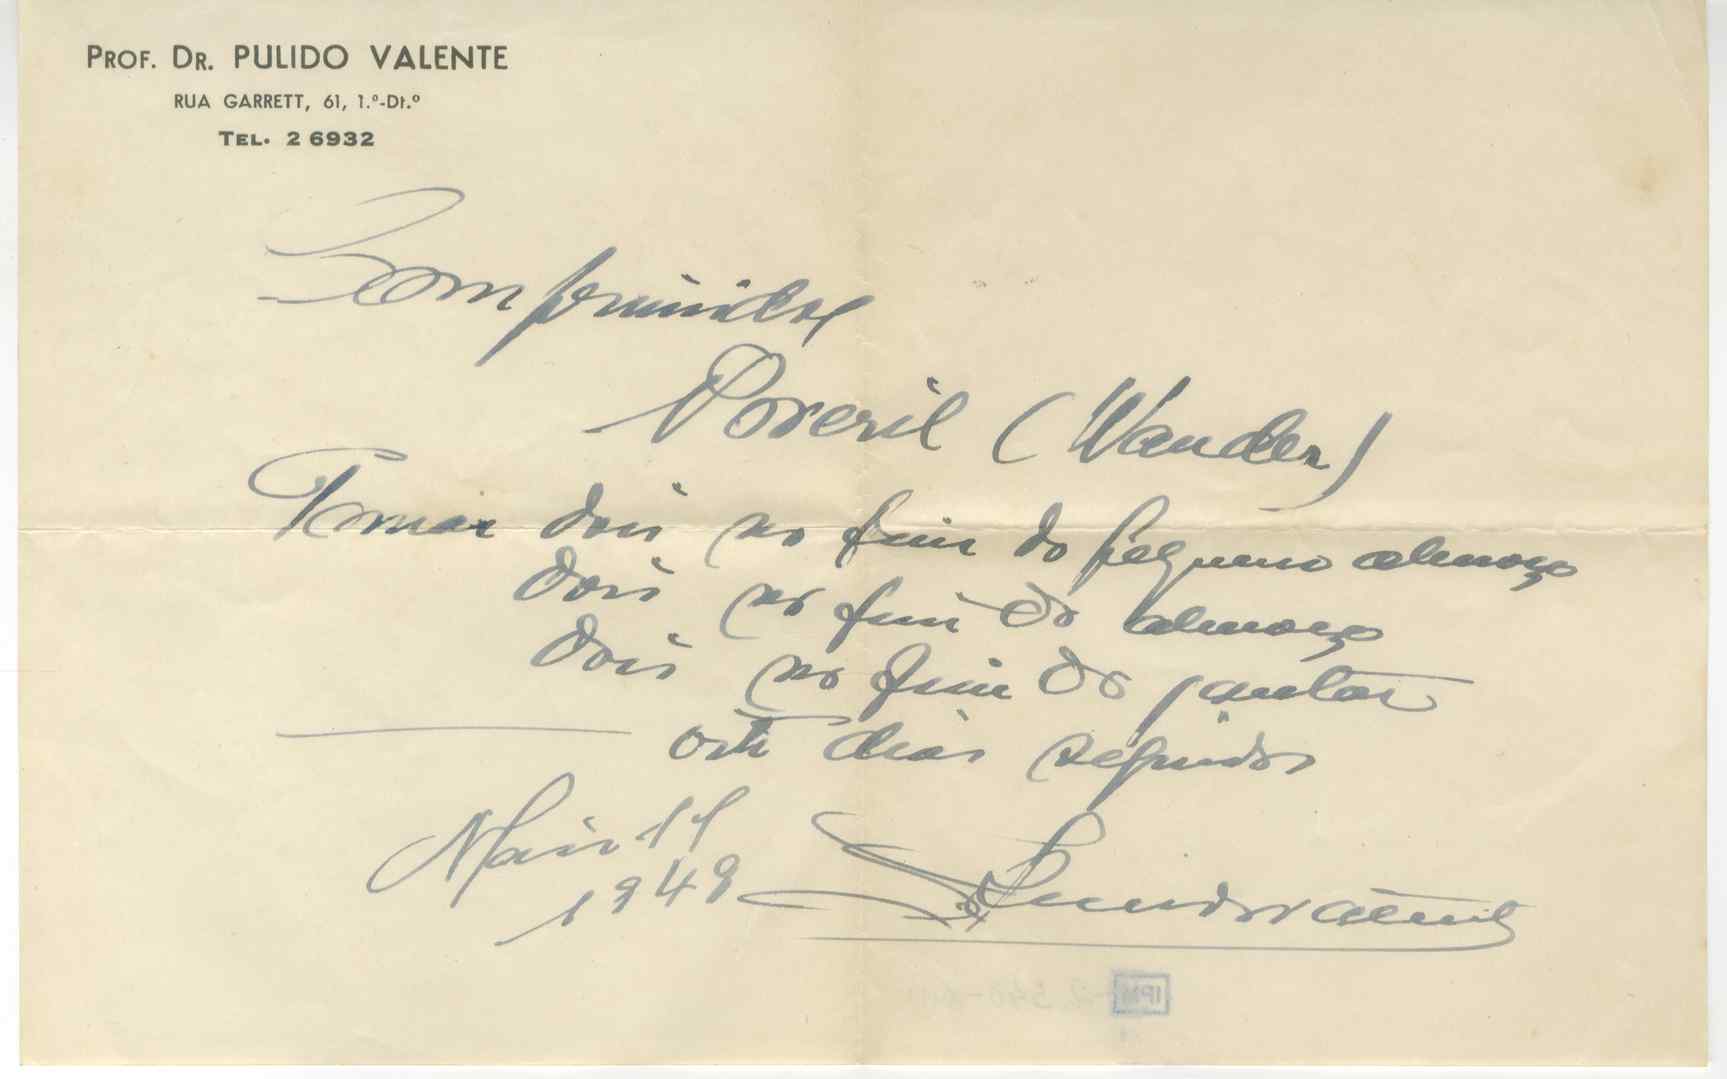 PROF. DR. PULIDO VALENTE
RUA GARRETT, 61, 1.º-Dt.º
TEL. 2 6932
Comprimidos
(Wander)
Tomar dois no fim do pequeno almoço
dois no fim do almoço
dois no fim do jantar
oito dias seguidos
Maio 11
1949
Pulido Valente
IPM